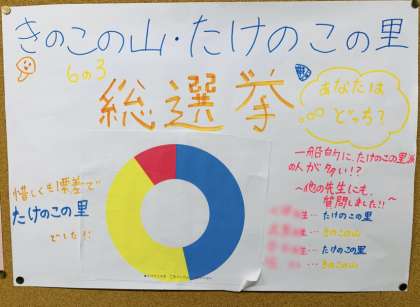 きのこの山・たけのこの里
6の3
総選挙
あなたは
どっち?
一般的に、たけのこの里派
の人が多い!?
〜他の先生にも、
質問しました!!〜
惜しくも1票差で
たけのこの里
でした!!
たけのこの里
きのこの山
たけのこの里
きのこの山